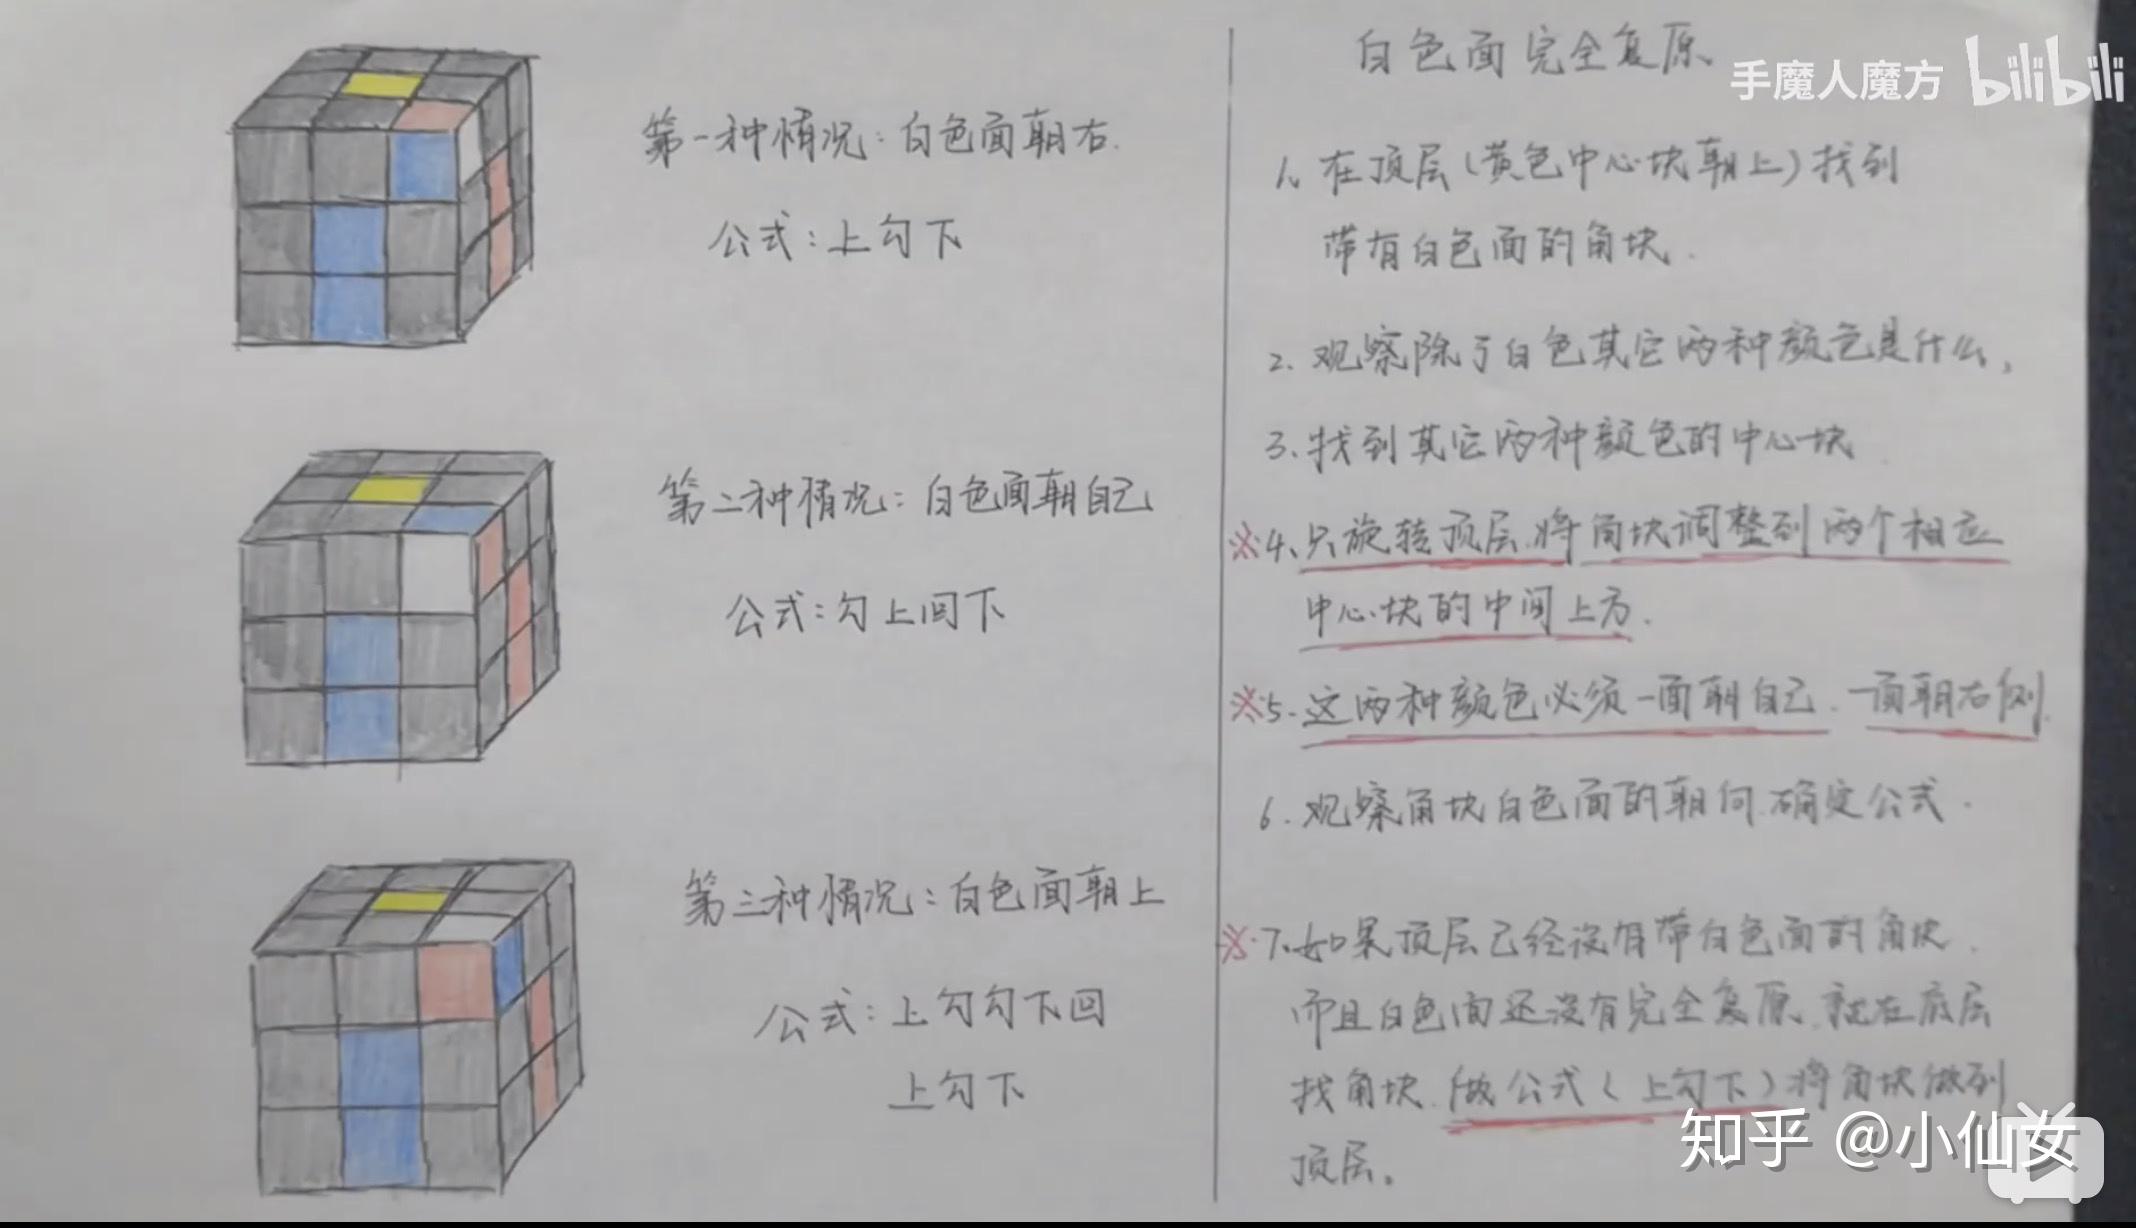 第一种情况：白色面朝右.
公式：上勾下
第二种情况：白色面朝自己
公式：勾上回下
第三种情况：白色面朝上
公式：上勾勾下回
上勾下
白色面完全复原.
手魔人魔方 bilibili
1. 在顶层(黄色中心块朝上)找到
带有白色面的角块.
2. 观察除了白色其它两种颜色是什么,
3. 找到其它两种颜色的中心块
※4. 只旋转顶层.将角块调整到两个相应
中心块的中间上方.
※5. 这两种颜色必须一面朝自己.一面朝右侧.
6. 观察角块白色面的朝向.确定公式.
※7. 如果顶层已经没有带白色面的角块.
而且白色面还没有完全复原.就在底层
找角块.做公式(上勾下)将角块做到
顶层。
知乎 @小仙女